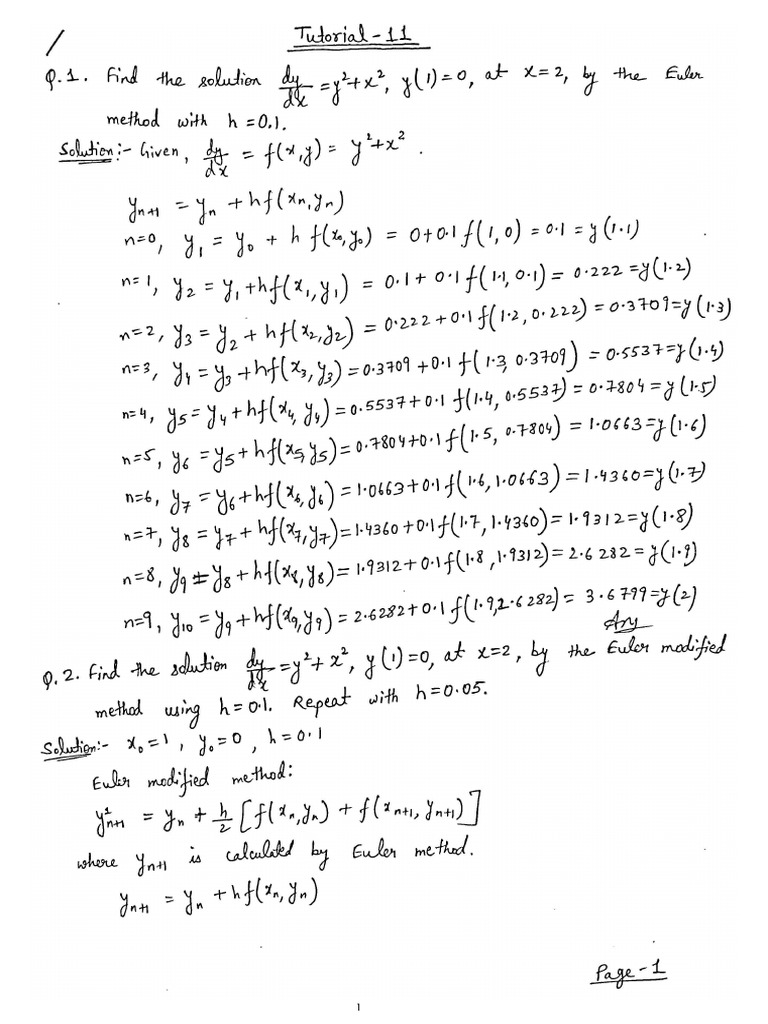 Tutorial-11
Q.1. Find the solution dy/dx = y²+x², y(1)=0, at x=2, by the Euler
method with h=0.1.
Solution:- Given, dy/dx = f(x,y) = y²+x².
yₙ₊₁ = yₙ + hf(xₙ,yₙ)
n=0, y₁ = y₀ + h f(x₀,y₀) = 0+0.1 f(1,0) = 0.1 = y(1.1)
n=1, y₂ = y₁+hf(x₁,y₁) = 0.1+ 0.1 f(1.1, 0.1) = 0.222 =y(1.2)
n=2, y₃ = y₂ + hf(x₂,y₂) = 0.222+0.1 f(1.2, 0.222) = 0.3709=y(1.3)
n=3, y₄ = y₃+hf(x₃,y₃) = 0.3709+0.1 f(1.3, 0.3709) = 0.5537=y(1.4)
n=4, y₅ = y₄+hf(x₄, y₄) = 0.5537+0.1 f(1.4, 0.5537) = 0.7804 = y(1.5)
n=5, y₆ = y₅+hf(x₅,y₅) = 0.7804+0.1 f(1.5, 0.7804) = 1.0663=y(1.6)
n=6, y₇ = y₆+hf(x₆,y₆) = 1.0663+0.1 f(1.6, 1.0663) = 1.4360=y(1.7)
n=7, y₈ = y₇+hf(x₇,y₇) = 1.4360+0.1 f(1.7, 1.4360) = 1.9312=y(1.8)
n=8, y₉ = y₈+hf(x₈,y₈) = 1.9312+0.1 f(1.8, 1.9312) = 2.6282 = y(1.9)
n=9, y₁₀ = y₉+hf(x₉,y₉) = 2.6282+0.1 f(1.9, 2.6282) = 3.6799=y(2)
Ans
Q.2. Find the solution dy/dx = y²+x², y(1)=0, at x=2, by the Euler modified
method using h=0.1. Repeat with h=0.05.
Solution:- x₀=1, y₀=0, h=0.1
Euler modified method:
y¹ₙ₊₁ = yₙ + h/2 [f(xₙ,yₙ) + f(xₙ₊₁, yₙ₊₁)]
where yₙ₊₁ is calculated by Euler method.
yₙ₊₁ = yₙ + hf(xₙ, yₙ)
Page-1
1